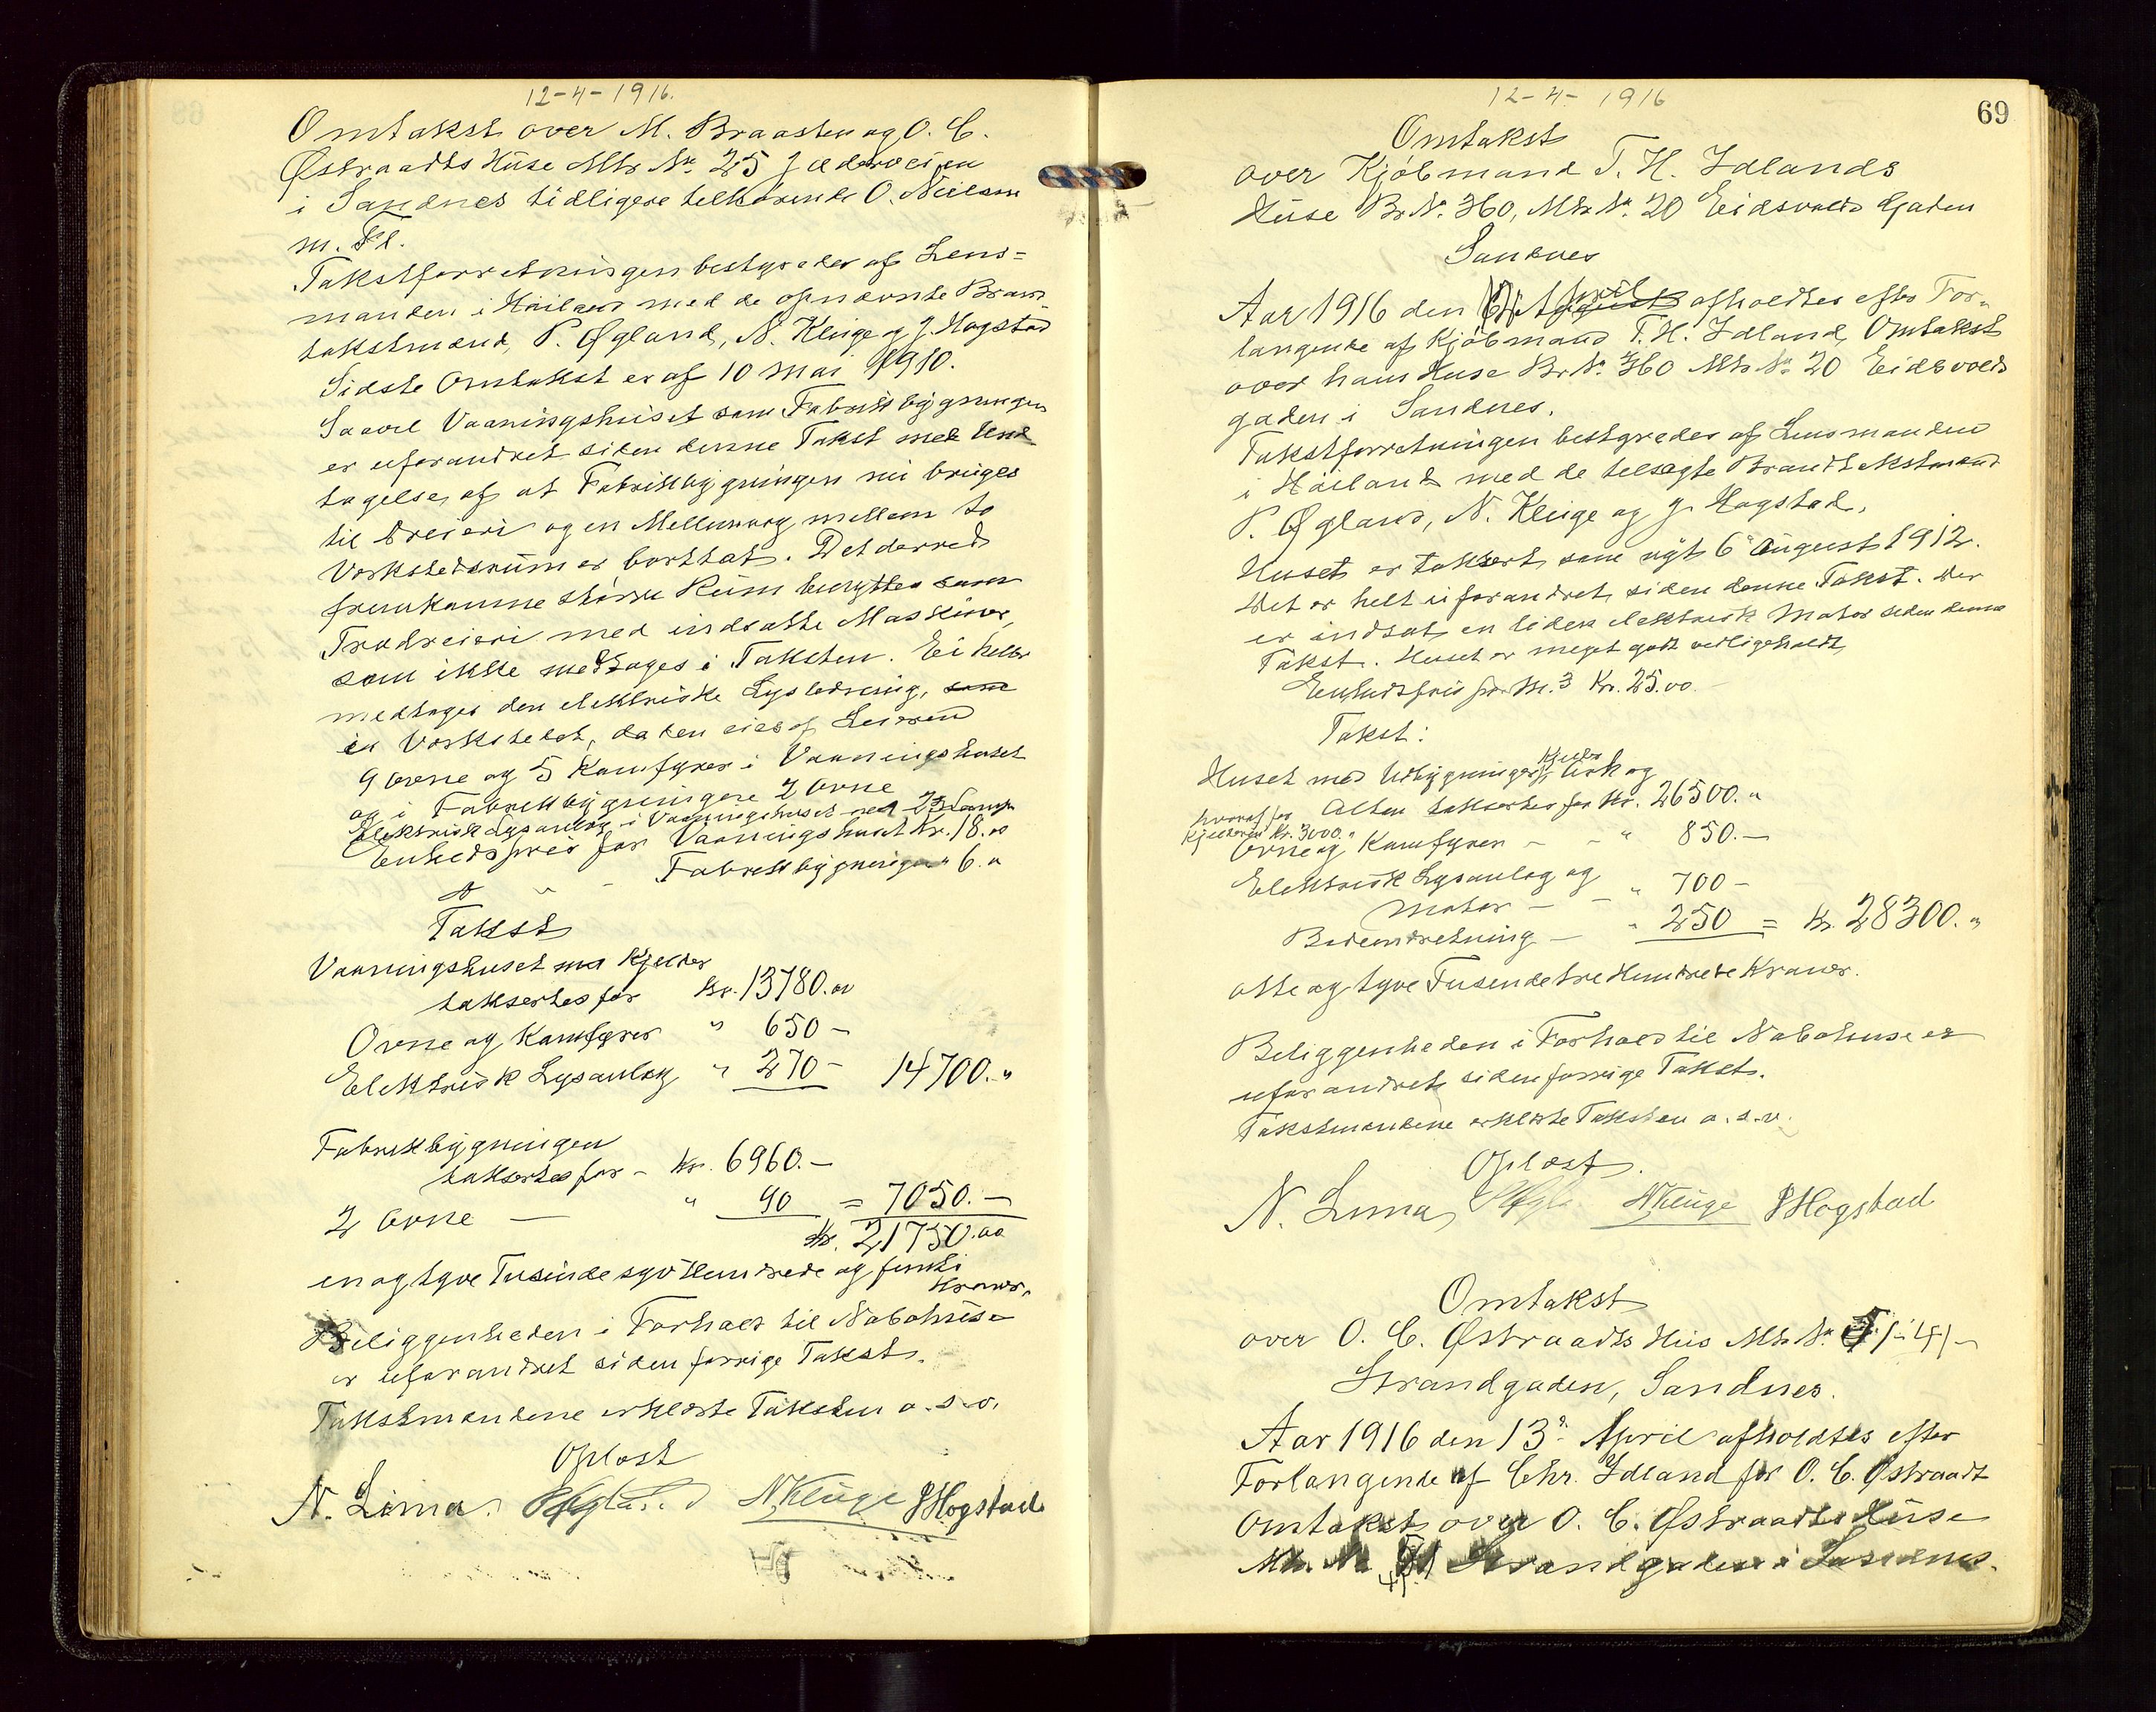 12-4-1916.
Omtakst over M. Braasten og O. C.
Østraadts Huse Mtr Nr. 25 Jæderveien
i Sandnes tidligere tilhørende O. Nielsen
m. Fl.
Takstforretningen bestyredes af Lens-
manden i Høiland med de opnævnte Bran-
takstmænd, P. Øgland, N. Kluge og J. Hogstad
Sidste Omtakst er af 10 Mai 1910.
Saavel Vaaningshuset som Fabrikbygningen
er uforandret siden denne Takst med Und-
tagelse af at Fabrikbygningen nu bruges
til Dreieri og en Mellemvæg mellem to
Verkstedsrum er borttat. Det derved
fremkomne større Rum benyttes som
Trædreieri med indsatte Maskiner,
som ikke medtages i Taksten. Ei heller
medtages den elektriske Lysledning, som
in Verkstedet, da den eies af Leieren
9 Ovne og 5 Komfyrer i Vaaningshuset
og i Fabrikbygningen 2 Ovne
Elektrisk Lysanlæg i Vaaningshuset med 23 Lamper
Enhedspris for Vaaningshuset Kr. 18.00
" " - Fabrikbygningen " 6.00
Takst
Vaaningshuset med Kjelder
taksertes for Kr. 13780.00
Ovne og Komfyrer " 650 -
Elektrisk Lysanlæg " 270 - 14700. "
Fabrikbygningen
taksertes for - Kr. 6960. -
2 Ovne — " 90 = 7050. -
Kr. 21750.00
en og tyve Tusinde syv Hundrede og femti
Kroner.
Beliggenheden i Forhold til Nabohuse
er uforandret siden forrige Takst.
Takstmændene erklærte Taksten o. s. v.
Oplæst
N. Lima. P Øgland N Kluge J Hogstad
12-4-1916
69
Omtakst
over Kjøbmand T. H. Idlands
Huse Br Nr. 360, Mtr Nr. 20 Eidsvolds Gaden
Sandnes
Aar 1916 den 12 April afholdtes efter For-
langende af Kjøbmand T. H. Idland, Omtakst
over hans Huse Br Nr. 360 Mtr Nr 20 Eidsvolds
gaden i Sandnes.
Takstforretningen bestyredes af Lensmanden
i Høiland med de tilsagte Brandtakstmænd
P. Øgland, N. Kluge og J. Hogstad.
Huset er taksert som nyt 6 August 1912.
Det er helt uforandret siden denne Takst. Der
er indsat en liden elektrisk Motor siden denne
Takst. Huset er meget godt vedligeholdt
Enhedspris pr M.3 Kr. 25.00. -
Takst:
Huset med Udbygninger, Kjelder, Ark og
Altan taksertes for Kr. 26500. "
hvoraf for
Kjelderen Kr. 3000. "
Ovne og Komfyrer - - " 850. -
Elektrisk Lysanlæg og
Motor - - " 700 -
Badeindretning - " 250 = Kr. 28300. "
otte og tyve Tusinde tre Hundrede Kroner.
Beliggenheden i Forhold til Nabohuse er
uforandret siden forrige Takst.
Takstmændene erklærte Taksten o. s. v.
Oplæst.
N. Lima, P Øgla N Kluge J Hogstad
Omtakst
over O. C. Østraadts Hus Mtr Nr.
Strandgaden, Sandnes.
Aar 1916 den 13. April afholdtes efter
Forlangende af Chr. Idland for O. C. Østraadt
Omtakst over O. C. Østraadts Huse
Mtr. Nr Strandgaden i Sandnes.